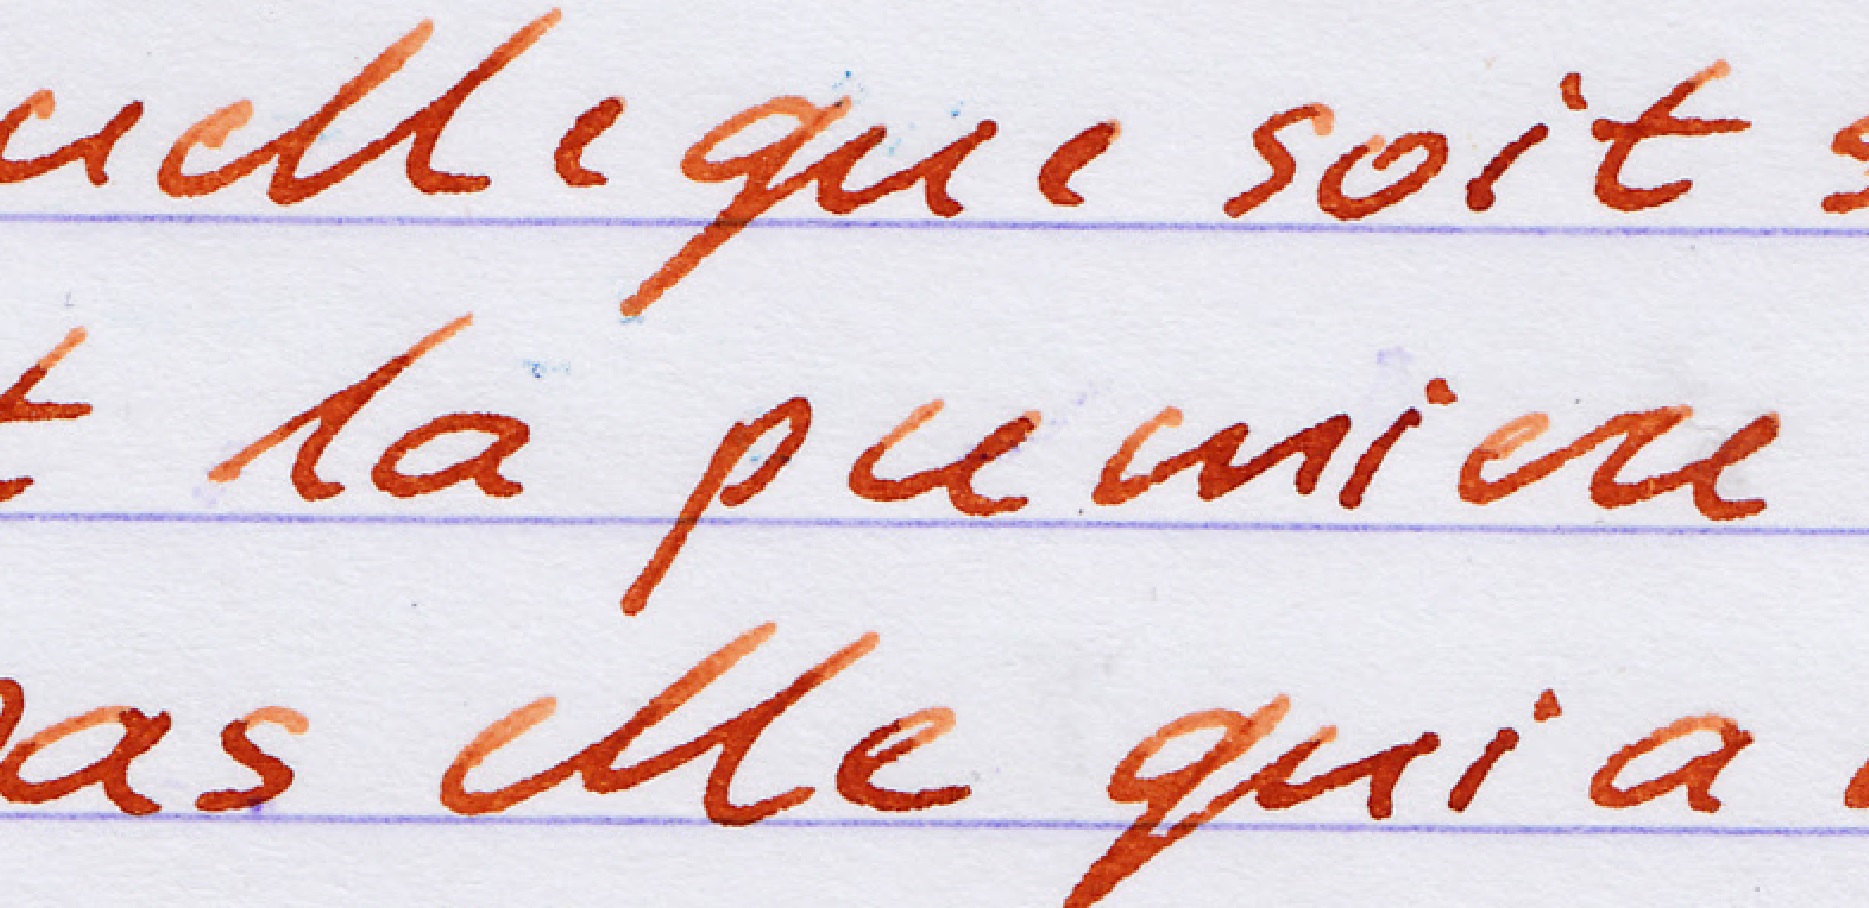 uelle que soit s
t la premiere
pas elle qui a